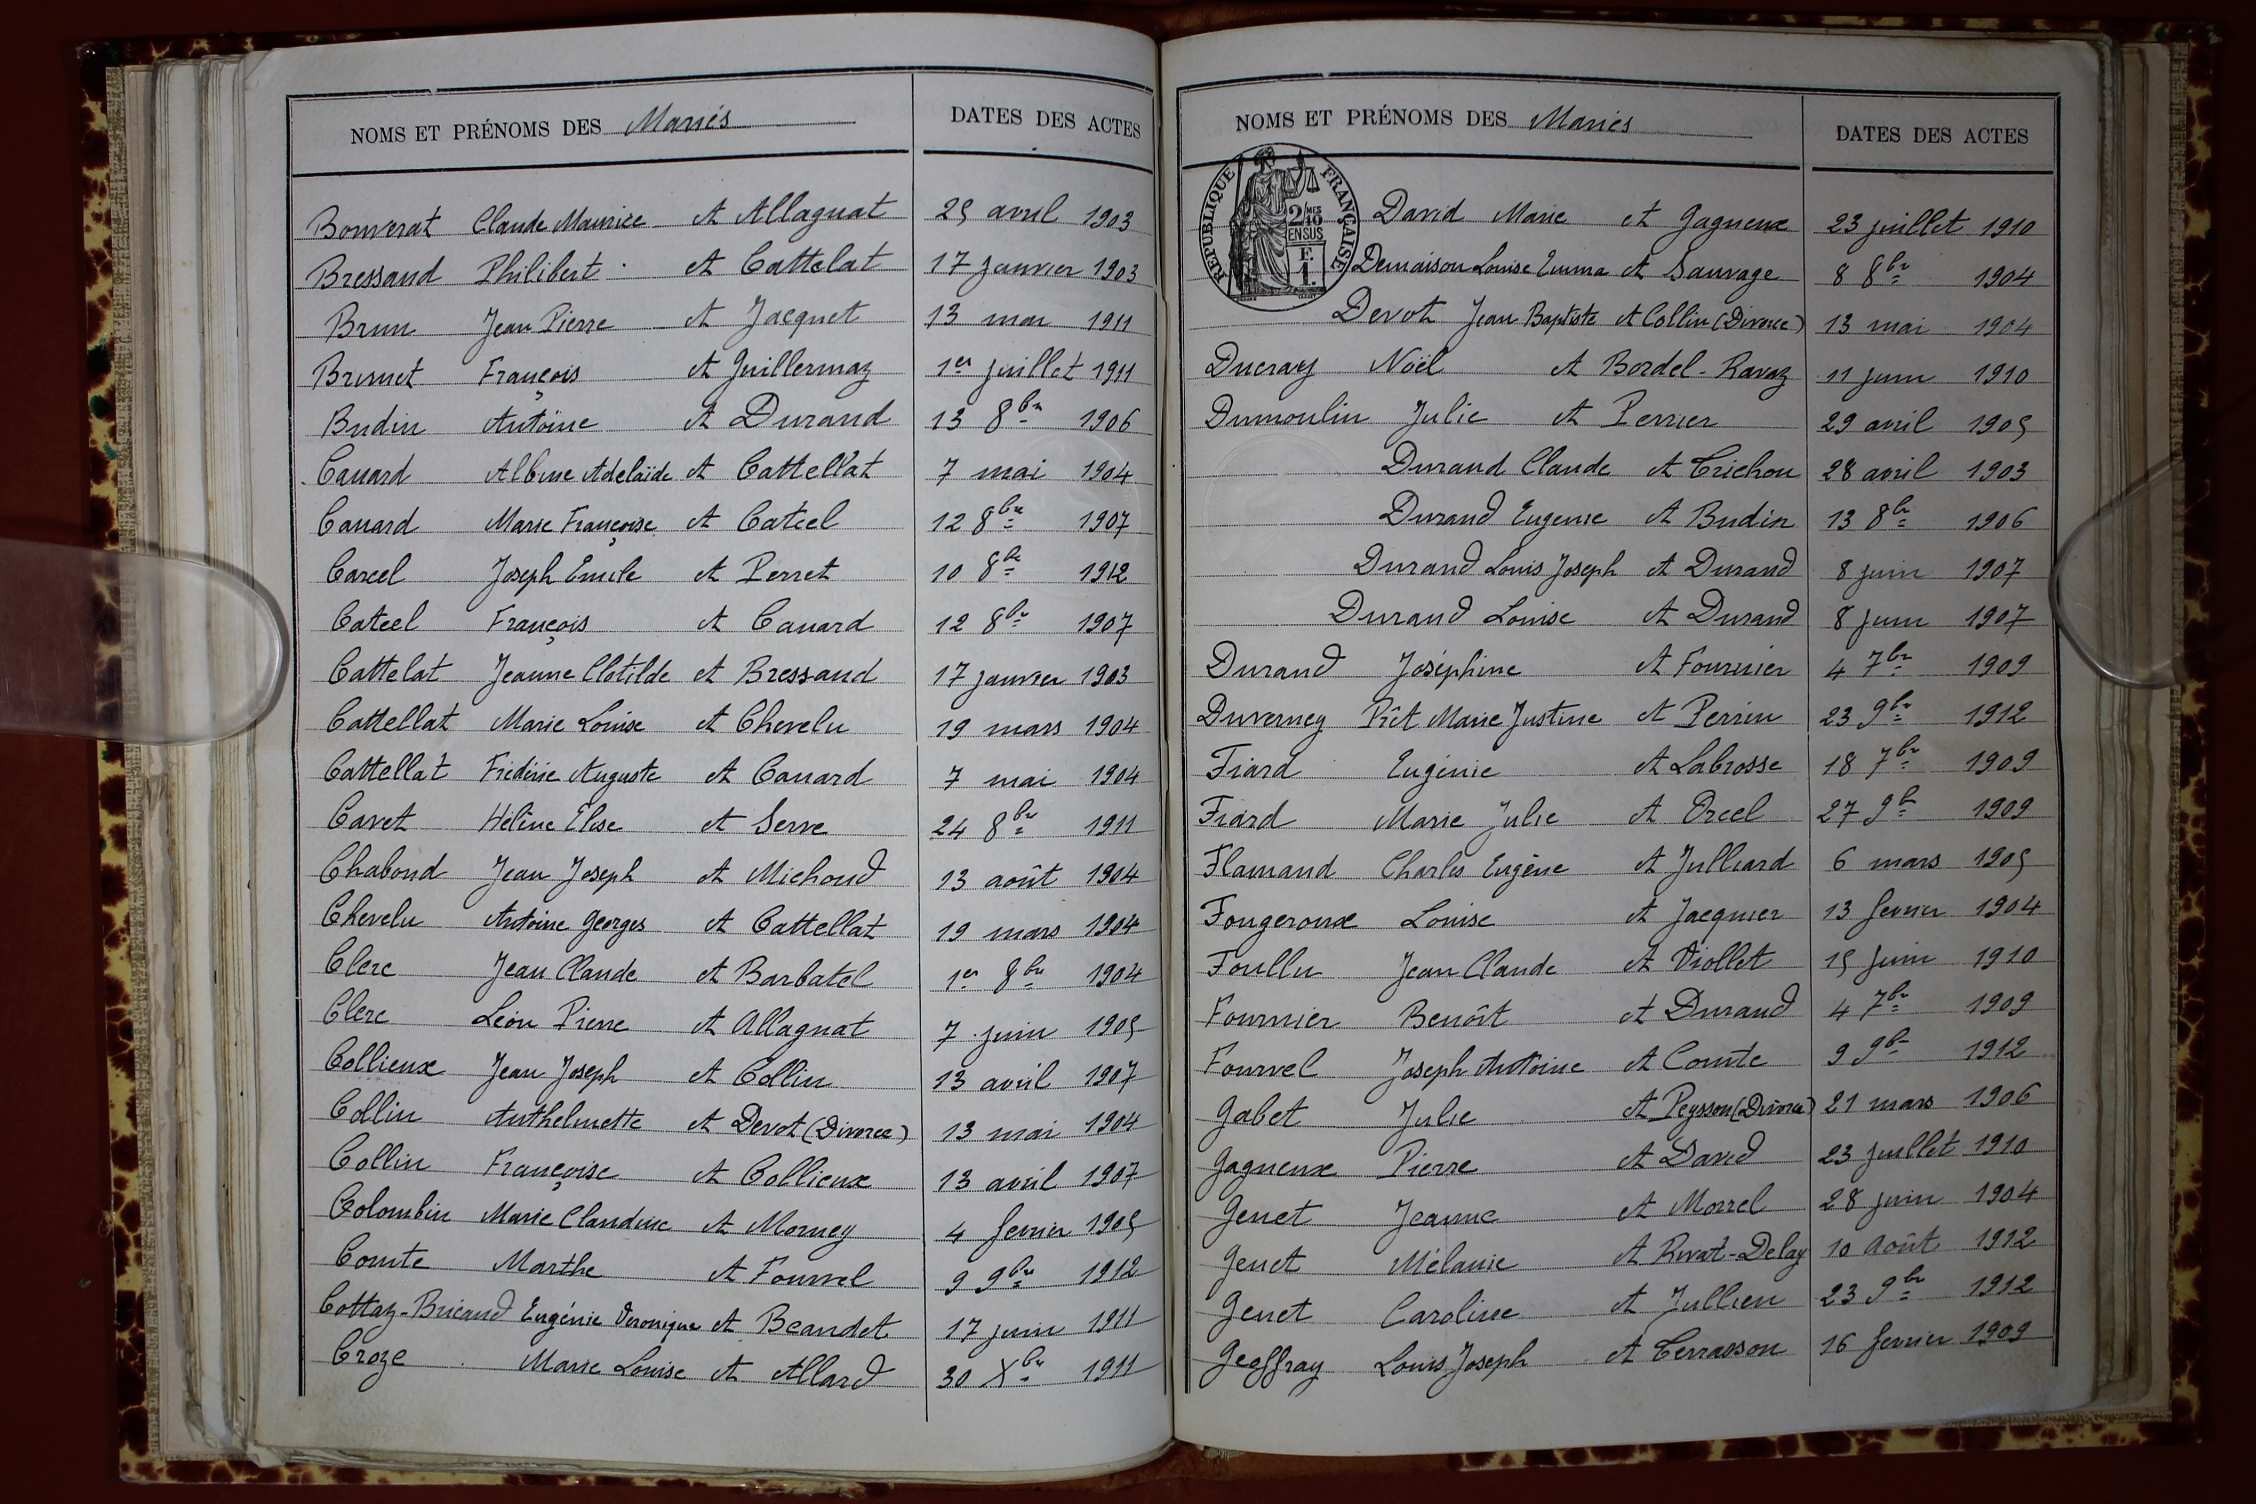 NOMS ET PRÉNOMS DES Mariés DATES DES ACTES
Bonverat Claude Maurice et Allagnat 25 avril 1903
Bressand Philibert et Cattelat 17 janvier 1903
Brun Jean Pierre et Jacquet 13 mai 1911
Brunet François et Guillermaz 1er juillet 1911
Budin Antoine et Durand 13 8bre 1906
Canard Albine Adelaïde et Cattellat 7 mai 1904
Canard Marie Françoise et Catcel 12 8bre 1907
Carcel Joseph Emile et Perret 10 8bre 1912
Catcel François et Canard 12 8bre 1907
Cattelat Jeanne Clotilde et Bressand 17 janvier 1903
Cattellat Marie Louise et Chevelu 19 mars 1904
Cattellat Fréderic Auguste et Canard 7 mai 1904
Cavet Hélène Elise et Serve 24 8bre 1911
Chaboud Jean Joseph et Michoud 13 août 1904
Chevelu Antoine Georges et Cattellat 19 mars 1904
Clerc Jean Claude et Barbatel 1er 8bre 1904
Clerc Léon Pierre et Allagnat 7 juin 1905
Collieux Jean Joseph et Collin 13 avril 1907
Collin Anthelmette et Devot (Divorce) 13 mai 1904
Collin Françoise et Collieux 13 avril 1907
Colombin Marie Claudine et Morney 4 fevrier 1905
Comte Marthe et Fourvel 9 9bre 1912
Cottaz-Bricand Eugénie Veronique et Beaudet 17 juin 1911
Croze Marie Louise et Allard 30 Xbre 1911
NOMS ET PRÉNOMS DES Mariés DATES DES ACTES
RÉPUBLIQUE FRANÇAISE
2/10MES
EN SUS
F.
1.
David Marie et Gagneux 23 juillet 1910
Demaison Louise Emma et Sauvage 8 8bre 1904
Devot Jean Baptiste et Collin (Divorce) 13 mai 1904
Ducray Noël et Bordel-Ravaz 11 juin 1910
Dumoulin Julie et Perrier 29 avril 1905
Durand Claude et Crichon 28 avril 1903
Durand Eugenie et Budin 13 8bre 1906
Durand Louis Joseph et Durand 8 juin 1907
Durand Louise et Durand 8 juin 1907
Durand Joséphine et Fournier 4 7bre 1909
Duverney Prêt Marie Justine et Perrin 23 9bre 1912
Fiard Eugénie et Labrosse 18 7bre 1909
Fiard Marie Julie et Orcel 27 9bre 1909
Flamand Charles Eugène et Julliard 6 mars 1905
Fougeroux Louise et Jacquier 13 fevrier 1904
Foullu Jean Claude et Viollet 15 juin 1910
Fournier Benoît et Durand 4 7bre 1909
Fourvel Joseph Antoine et Comte 9 9bre 1912
Gabet Julie et Peysson (Divorce) 21 mars 1906
Gagneux Pierre et David 23 juillet 1910
Genet Jeanne et Morrel 28 juin 1904
Genet Mélanie et Rivat-Delay 10 Août 1912
Genet Caroline et Jullien 23 9bre 1912
Geoffray Louis Joseph et Terrasson 16 fevrier 1909